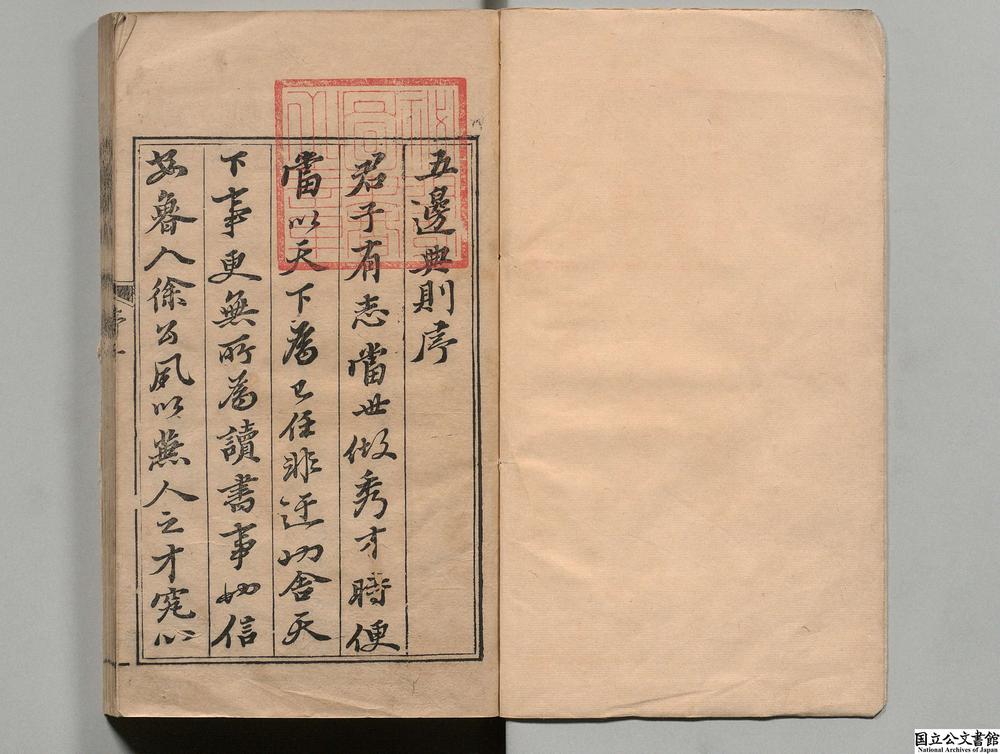 五邊典則序
君子有志當世做秀才時便
當以天下為己任非迂也舍天
下事更無所為讀書事也信
安魯人徐公夙以兼人之才究心
序 一
国立公文書館
National Archives of Japan